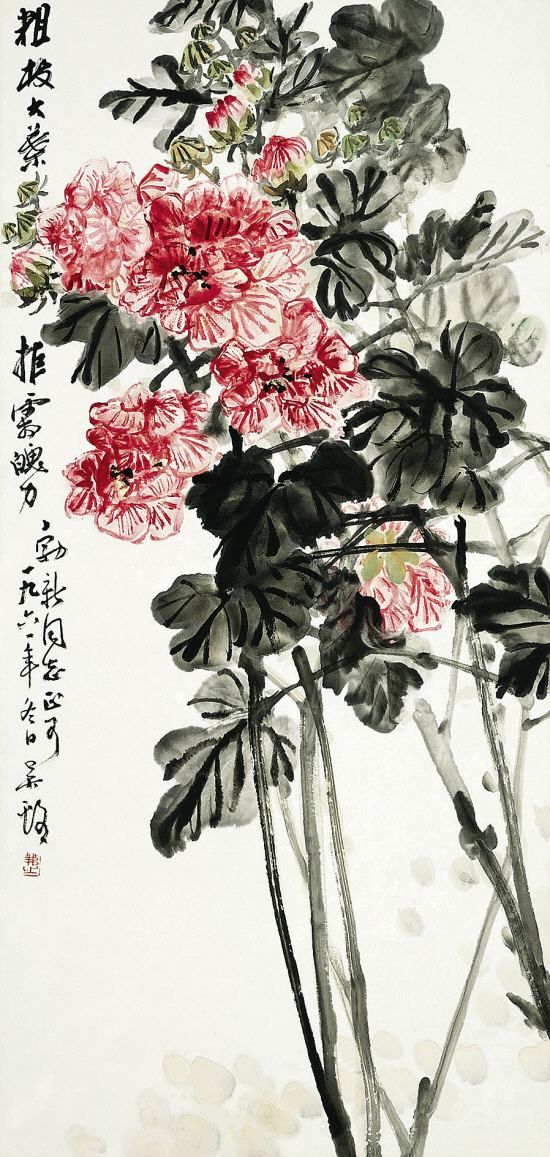 粗枝大葉
拒霜魄力
勃新同志正可
一九六一年冬日吴谿